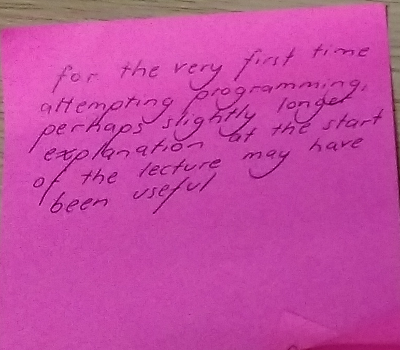 for the very first time
attempting programming,
perhaps slightly longer
explanation at the start
of the lecture may have
been useful